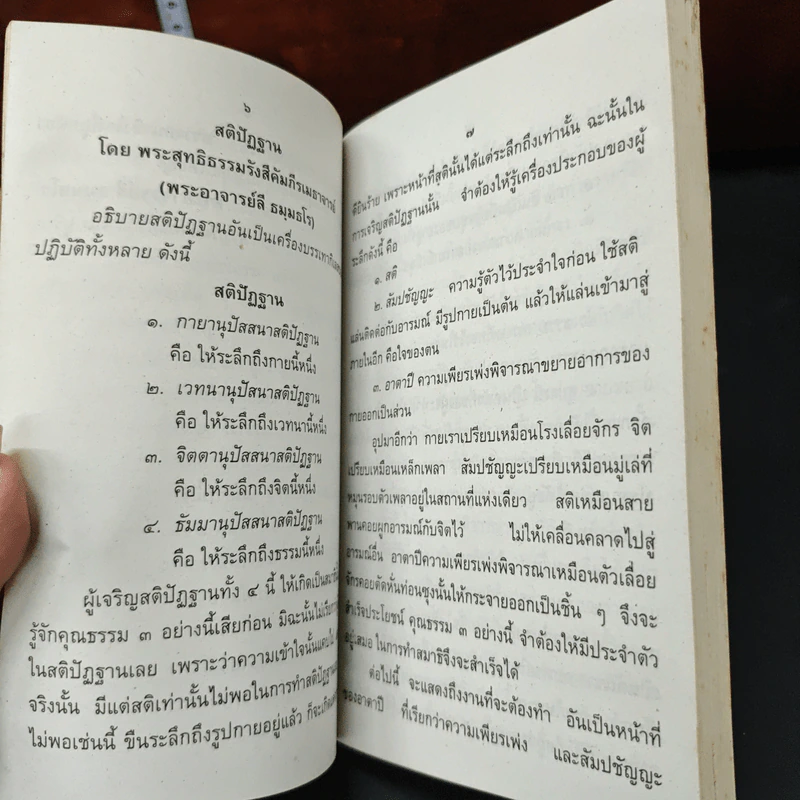 ๖
สติปัฏฐาน
โดย พระสุทธิธรรมรังสีคัมภีรเมธาจารย์
(พระอาจารย์ลี ธมฺมธโร)
อธิบายสติปัฏฐานอันเป็นเครื่องบรรเทา
ปฏิบัติทั้งหลาย ดังนี้
สติปัฏฐาน
๑. กายานุปัสสนาสติปัฏฐาน
คือ ให้ระลึกถึงกายนี้หนึ่ง
๒. เวทนานุปัสนาสติปัฏฐาน
คือ ให้ระลึกถึงเวทนานี้หนึ่ง
๓. จิตตานุปัสสนาสติปัฏฐาน
คือ ให้ระลึกถึงจิตนี้หนึ่ง
๔. ธัมมานุปัสสนาสติปัฏฐาน
คือ ให้ระลึกถึงธรรมนี้หนึ่ง
ผู้เจริญสติปัฏฐานทั้ง ๔ นี้ ให้เกิดเป็น
รู้จักคุณธรรม ๓ อย่างนี้เสียก่อน มิฉะนั้นไม่เรียก
ในสติปัฏฐานเลย เพราะว่าความเข้าใจนั้นแคบไป
จริงนั้น มีแต่สติเท่านั้นไม่พอในการทำสติปัฏฐาน
ไม่พอเช่นนี้ ขืนระลึกถึงรูปกายอยู่แล้ว ก็จะเกิด
๗
ดียินร้าย เพราะหน้าที่สตินั้นได้แต่ระลึกถึงเท่านั้น ฉะนั้นใน
การเจริญสติปัฏฐานนั้น จำต้องให้รู้เครื่องประกอบของผู้
ระลึกดังนี้ คือ
๑. สติ
๒. สัมปชัญญะ ความรู้ตัวไว้ประจำใจก่อน ใช้สติ
แล่นติดต่อกับอารมณ์ มีรูปกายเป็นต้น แล้วให้แล่นเข้ามาสู่
ภายในอีก คือใจของตน
๓. อาตาปี ความเพียรเพ่งพิจารณาขยายอาการของ
กายออกเป็นส่วน
อุปมาอีกว่า กายเราเปรียบเหมือนโรงเลื่อยจักร จิต
เปรียบเหมือนเหล็กเพลา สัมปชัญญะเปรียบเหมือนมู่เล่ที่
หมุนรอบตัวเพลาอยู่ในสถานที่แห่งเดียว สติเหมือนสาย
พานคอยผูกอารมณ์กับจิตไว้ ไม่ให้เคลื่อนคลาดไปสู่
อารมณ์อื่น อาตาปีความเพียรเพ่งพิจารณาเหมือนตัวเลื่อย
จักรคอยตัดหั่นท่อนซุงนั้นให้กระจายออกเป็นชิ้น ๆ จึงจะ
สำเร็จประโยชน์ คุณธรรม ๓ อย่างนี้ จำต้องให้มีประจำตัว
อยู่เสมอ ในการทำสมาธิจึงจะสำเร็จได้
ต่อไปนี้ จะแสดงถึงงานที่จะต้องทำ อันเป็นหน้าที่
ของอาตาปี ที่เรียกว่าความเพียรเพ่ง และสัมปชัญญะ